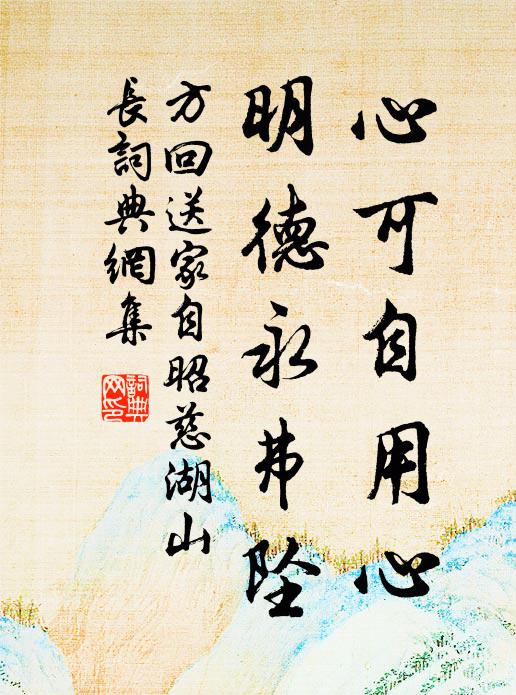 心可自用心
明德永弗坠
方回送家自昭慈湖山
長詞典網集
詞典
网印